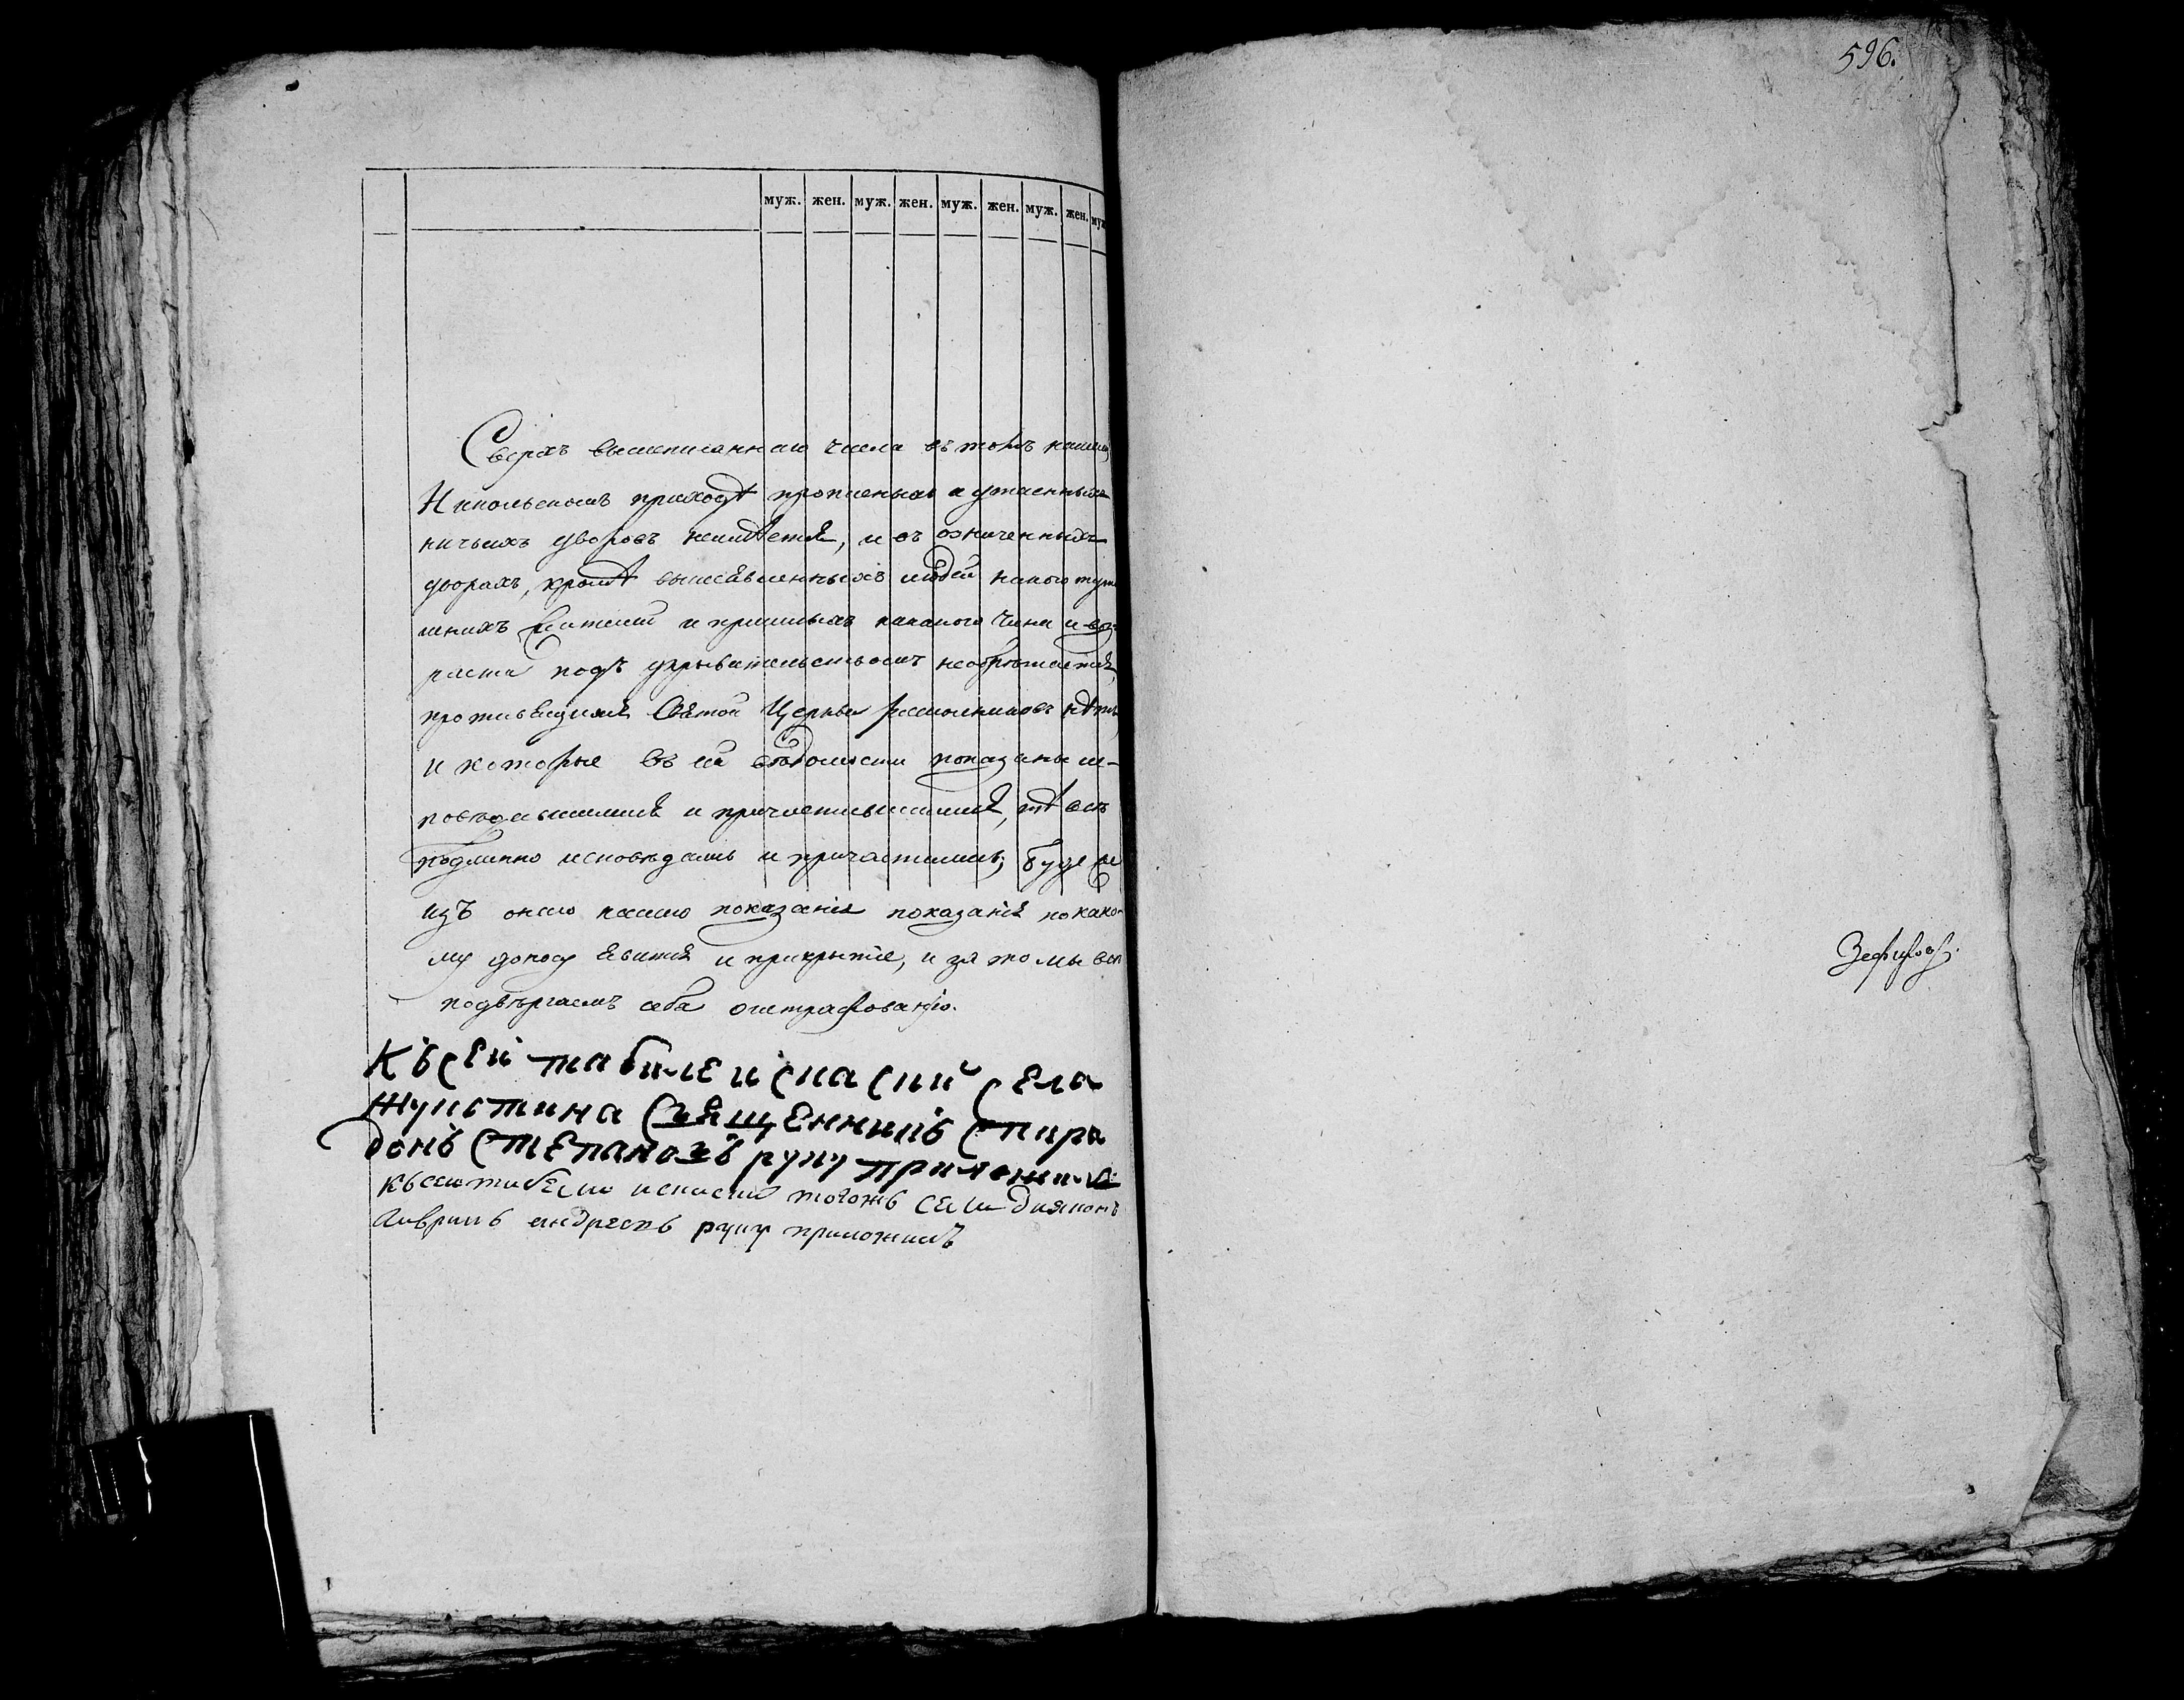 596.
муж. жен. муж. жен. муж. жен. муж. жен. муж
Сверхъ вышеписаннаго числа въ томъ нашемъ
Никольскомъ приходѣ прописныхъ и утаенныхъ
ничьихъ дворовъ неимѣется, и въ означенныхъ
дворахъ, кромѣ людей
жителей и пришлыхъ какаого чина и воз-
раста подъ укрывательствомъ необрѣтается,
Святой Церкви нѣтъ,
и которые въ сей вѣдомости показаны ис-
повѣдавшимися и причастившимися, тѣ всѣ
подлинно исповѣдались и причастились; буде же
изъ онаго нашего показанія показанія по како-
му доносу явится и прикрытіе, и за то мы вси
подвѣргаемъ себя оштрафованію.
Къ сей табиле исказкий села
Жукотина Священникъ Спири
донъ Степановъ руку приложилъ
къ сей табели тогожъ села диаконъ
Гаврилъ андреевъ руку приложилъ
Зефировъ.